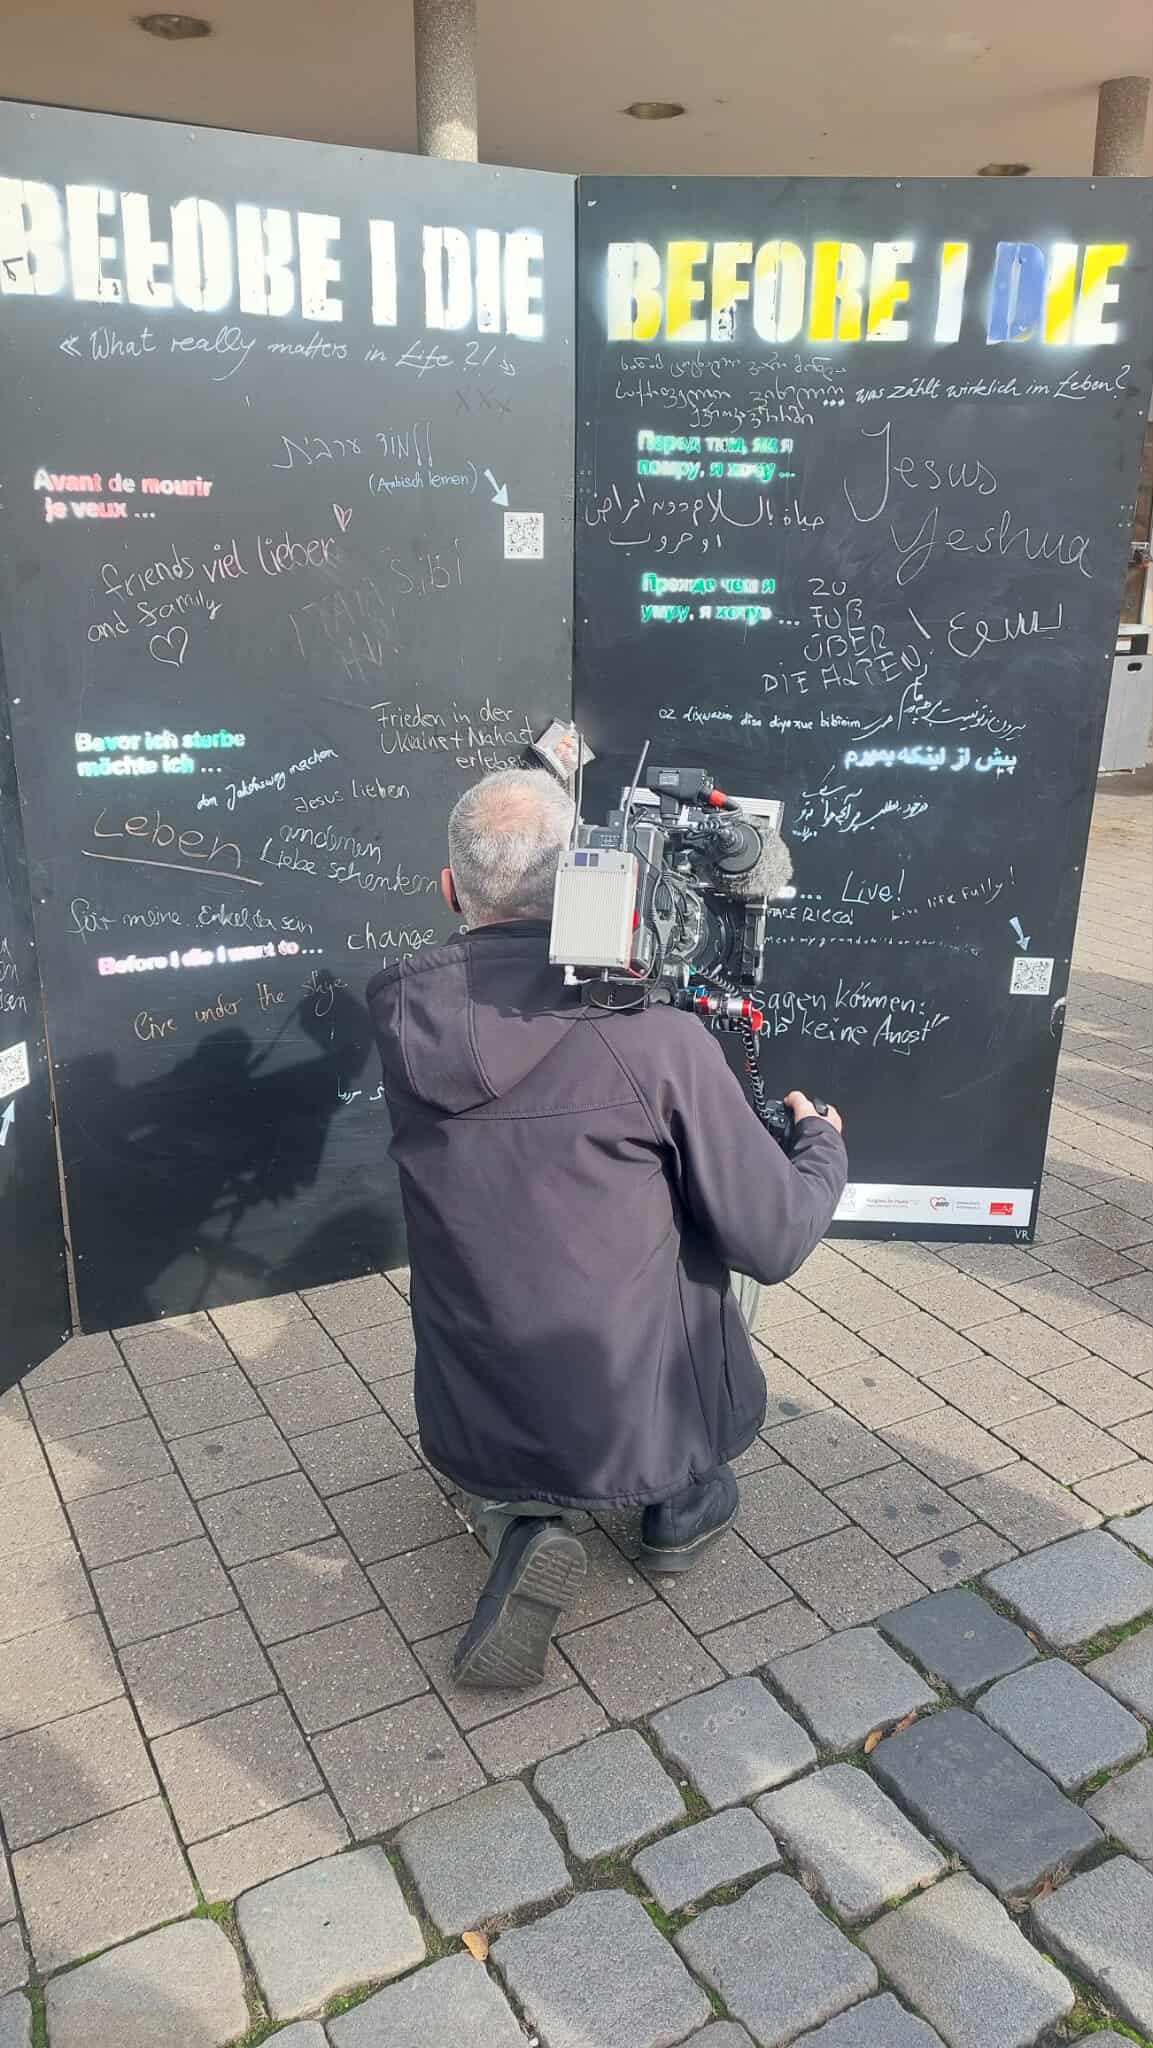 BEFORE I DIE
« What really matters in Life ?! »
xxx
ללמוד ערבית
(Arabisch lernen)
Avant de mourir
je veux ...
friends viel lieber
and family
Frieden in der
Ukraine + Nahost
erleben
Bevor ich sterbe
möchte ich ...
den Jakobsweg machen
Jesus lieben
Leben
anderen
Liebe schenken
für meine Enkel da sein
change
Before I die I want to ...
live under the skye
سوريا
BEFORE I DIE
... was zählt wirklich im Leben?
Перед тим, як я
помру, я хочу ...
Jesus
Yeshua
يسوع
حياة بالسلام دون امراض
او حروب
Прежде чем я
умру, я хочу ...
ZU
FUß
ÜBER
DIE ALPEN!
ez dixwazim disa diya xwe bibinim
پیش از اینکه بمیرم
... Live!
RICCO!
Live life fully!
sagen können:
hab keine Angst"
VR